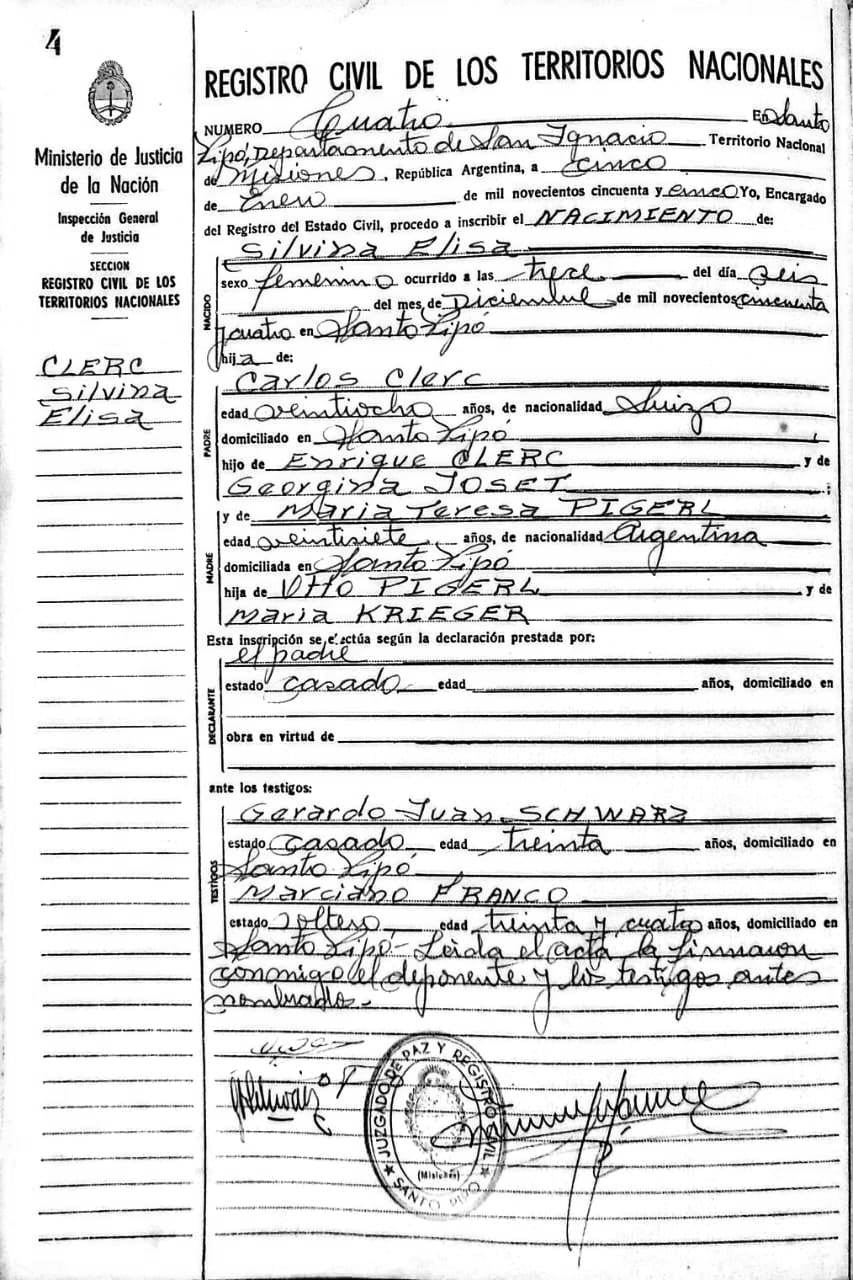 4
Ministerio de Justicia
de la Nación
Inspección General
de Justicia
SECCION
REGISTRO CIVIL DE LOS
TERRITORIOS NACIONALES
CLERC
Silvina
Elisa
REGISTRO CIVIL DE LOS TERRITORIOS NACIONALES
NUMERO Cuatro En Santo
Pipó, Departamento de San Ignacio Territorio Nacional
de Misiones, República Argentina, a cinco
de Enero de mil novecientos cincuenta y cinco Yo, Encargado
del Registro del Estado Civil, procedo a inscribir el NACIMIENTO de:
Silvina Elisa
NACIDO
sexo femenino ocurrido a las trece del día seis
del mes de Diciembre de mil novecientos cincuenta
y cuatro en Santo Pipó
hija de:
PADRE
Carlos Clerc
edad veintiocho años, de nacionalidad Suizo
domiciliado en Santo Pipó
hijo de Enrique CLERC y de
Georgina JOSET ;
MADRE
y de Maria Teresa PIGERL
edad veintisiete, años, de nacionalidad Argentina
domiciliada en Santo Pipó
hija de Otto PIGERL y de
Maria KRIEGER
Esta inscripción se efectúa según la declaración prestada por:
el padre
DECLARANTE
estado casado edad años, domiciliado en
obra en virtud de
ante los testigos:
TESTIGOS
Gerardo Juan SCHWARZ
estado casado edad treinta años, domiciliado en
Santo Pipó
Marciano FRANCO
estado soltero, edad treinta y cuatro años, domiciliado en
Santo Pipó - Leida el acta la firmaron
conmigo el deponente y los testigos antes
nombrados.-
JUZGADO DE PAZ Y REGISTRO CIVIL
(Misiones)
SANTO PIPO